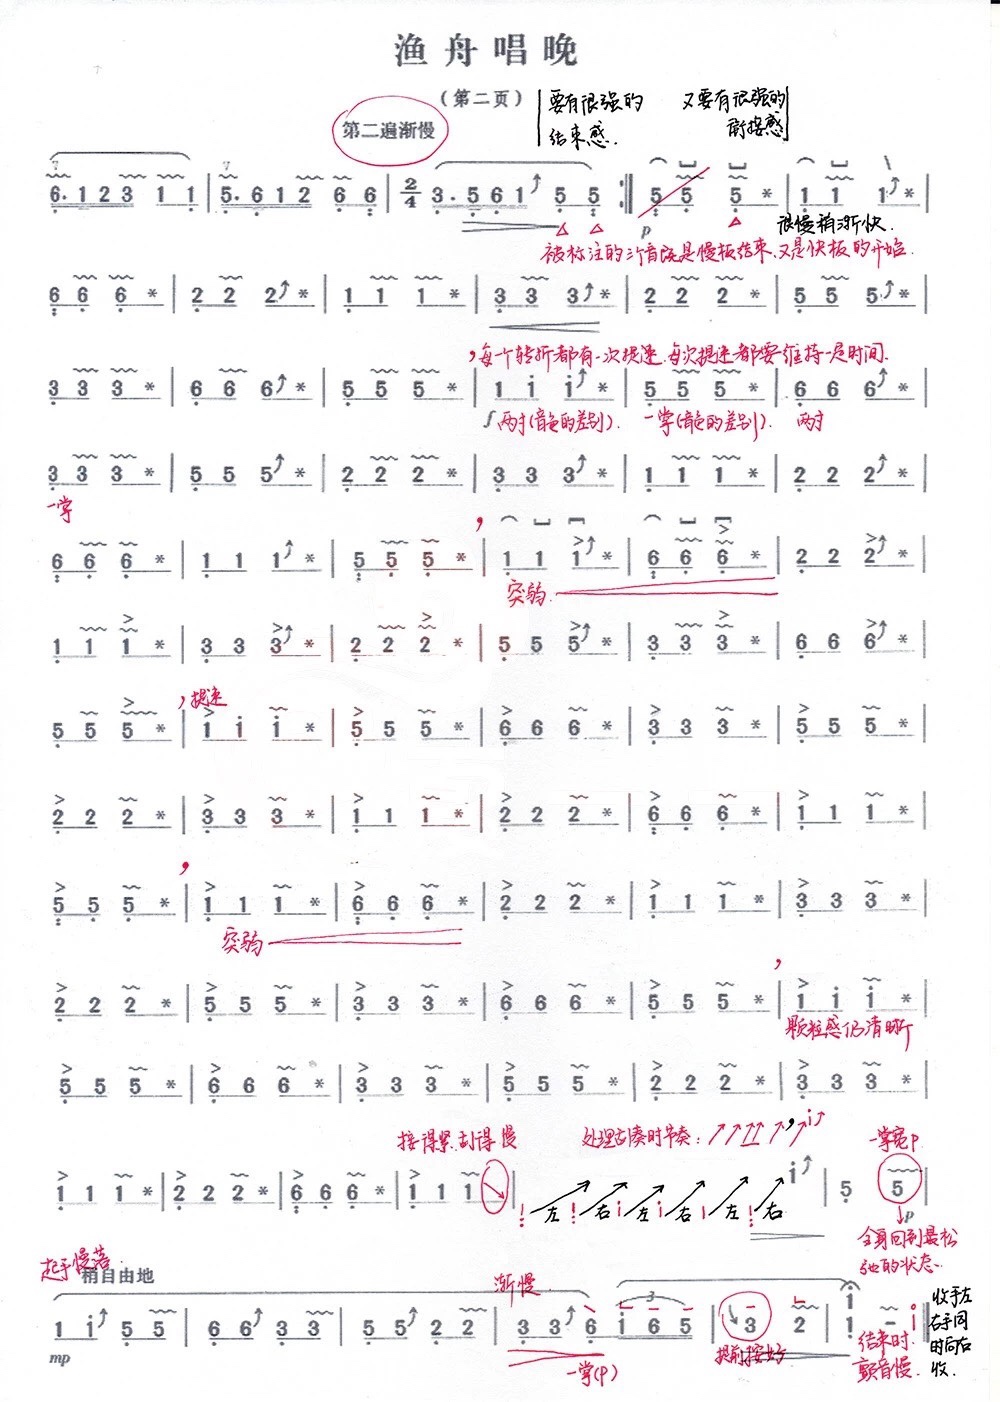 渔舟唱晚
（第二页）
要有很强的 又要有很强的
结束感. 衔接感
第二遍渐慢
6. 1 2 3 1 1 | 5. 6 1 2 6 6 | 2/4 3. 5 6 1 5 5 :|| 5 5 5 * | 1 1 1 * |
p
很慢稍渐快.
被标注的三个音既是慢板结束,又是快板的开始.
6 6 6 * | 2 2 2 * | 1 1 1 * | 3 3 3 * | 2 2 2 * | 5 5 5 * |
,每个转折都有一次提速.每次提速都要维持一定时间.
3 3 3 * | 6 6 6 * | 5 5 5 * | 1 i i * | 5 5 5 * | 6 6 6 * |
f 两寸(音色的差别). 一掌(音色的差别). 两寸
3 3 3 * | 5 5 5 * | 2 2 2 * | 3 3 3 * | 1 1 1 * | 2 2 2 * |
一掌
6 6 6 * | 1 1 1 * | 5 5 5 * | 1 1 1 * | 6 6 6 * | 2 2 2 * |
突弱.
1 1 1 * | 3 3 3 * | 2 2 2 * | 5 5 5 * | 3 3 3 * | 6 6 6 * |
, 提速
5 5 5 * | 1 i i * | 5 5 5 * | 6 6 6 * | 3 3 3 * | 5 5 5 * |
2 2 2 * | 3 3 3 * | 1 1 1 * | 2 2 2 * | 6 6 6 * | 1 1 1 * |
5 5 5 * | 1 1 1 * | 6 6 6 * | 2 2 2 * | 1 1 1 * | 3 3 3 * |
突弱
2 2 2 * | 5 5 5 * | 3 3 3 * | 6 6 6 * | 5 5 5 * | 1 i i * |
颗粒感仍清晰
5 5 5 * | 6 6 6 * | 3 3 3 * | 5 5 5 * | 2 2 2 * | 3 3 3 * |
接得紧,刮得慢 处理古奏时节奏: i 一掌宽P
1 1 1 * | 2 2 2 * | 6 6 6 * | 1 1 1 | 左 右 i 左 i 右 左 右 i | 5 5 |
p
全身回到最松
弛的状态.
起手慢落
稍自由地
渐慢
1 i 5 5 | 6 6 3 3 | 5 5 2 2 | 3 3 6 i 6 5 | 3 2 | i 1 - i ||
3
mp
一掌(p)
提前按好
结束时.
颤音慢.
收手左
右手同
时向右
收.